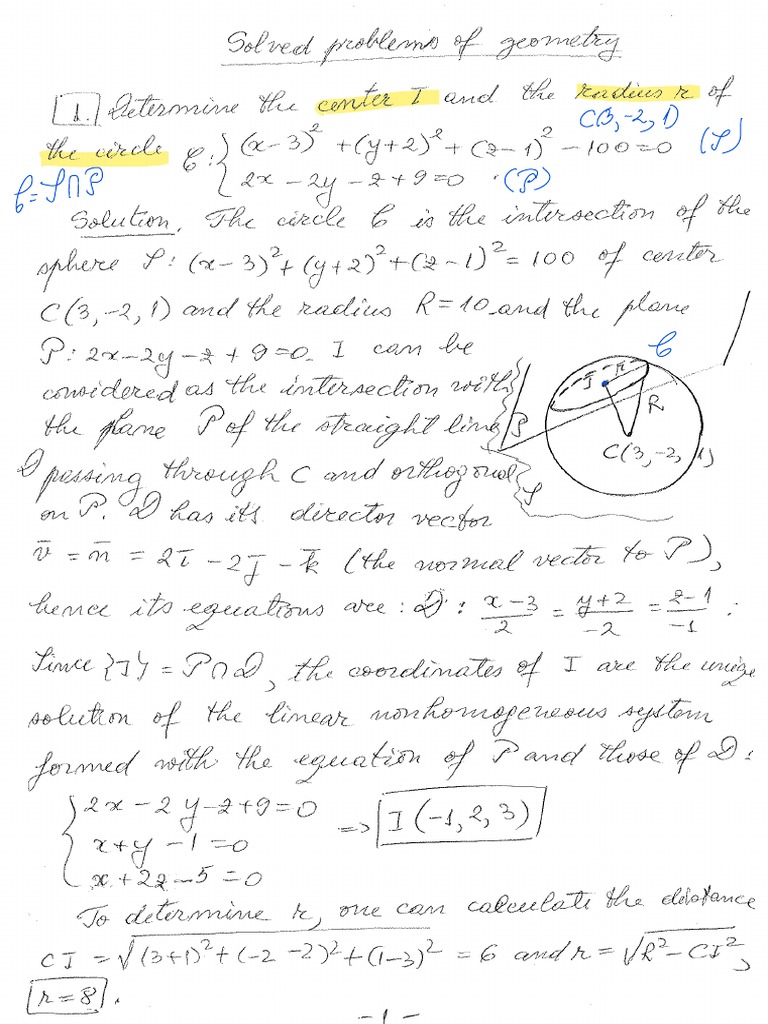 Solved problems of geometry
1. Determine the center I and the radius r of
C(3,-2,1)
the circle 𝒞: { (x-3)² + (y+2)² + (z-1)² - 100 = 0 (𝒮)
2x - 2y - z + 9 = 0 . (𝒫)
𝒞 = 𝒮 ∩ 𝒫
Solution. The circle 𝒞 is the intersection of the
sphere 𝒮: (x-3)² + (y+2)² + (z-1)² = 100 of center
C(3,-2,1) and the radius R = 10 and the plane
𝒫: 2x - 2y - z + 9 = 0. I can be
considered as the intersection with
the plane 𝒫 of the straight line
𝒟 passing through C and orthogonal
on 𝒫. 𝒟 has its director vector
𝒞
I
r
R
𝒫
C(3,-2,1)
𝒮
v̄ = n̄ = 2ī - 2j̄ - k̄ (the normal vector to 𝒫),
hence its equations are: 𝒟: (x-3)/2 = (y+2)/-2 = (z-1)/-1 .
Since {I} = 𝒫 ∩ 𝒟, the coordinates of I are the uniqe
solution of the linear nonhomogeneous system
formed with the equation of 𝒫 and those of 𝒟:
{ 2x - 2y - z + 9 = 0
x + y - 1 = 0 => I(-1,2,3)
x + 2z - 5 = 0
To determine r, one can calculate the distance
CI = √((3+1)² + (-2-2)² + (1-3)²) = 6 and r = √(R² - CI²),
r = 8 .
-1-